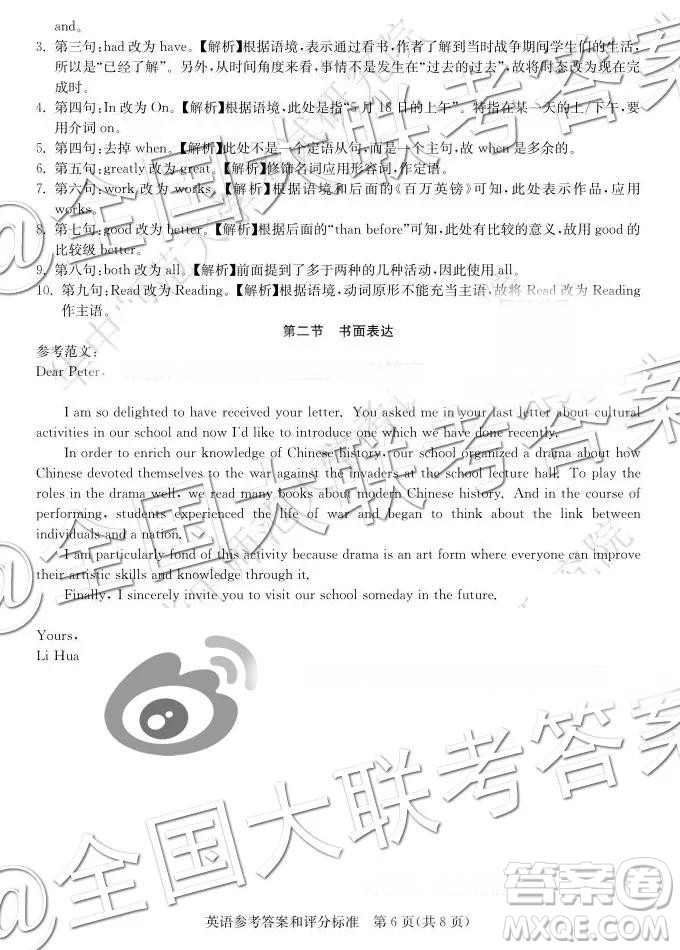 and。
3. 第三句：had 改为 have。【解析】根据语境，表示通过看书，作者了解到当时战争期间学生们的生活，
所以是“已经了解”。另外，从时间角度来看，事情不是发生在“过去的过去”，故将时态改为现在完
成时。
4. 第四句：In 改为 On。【解析】根据语境，此处是指“5 月 18 日的上午”。特指在某一天的上/下午，要
用介词 on。
5. 第四句：去掉 when。【解析】此处不是一个定语从句，而是一个主句，故 when 是多余的。
6. 第五句：greatly 改为 great。【解析】修饰名词应用形容词，作定语。
7. 第六句：work 改为 works。【解析】根据语境和后面的《百万英镑》可知，此处表示作品，应用
works。
8. 第七句：good 改为 better。【解析】根据后面的“than before”可知，此处有比较的意义，故用 good 的
比较级 better。
9. 第八句：both 改为 all。【解析】前面提到了多于两种的几种活动，因此使用 all。
10. 第九句：Read 改为 Reading。【解析】根据语境，动词原形不能充当主语，故将 Read 改为 Reading
作主语。
第二节　书面表达
参考范文：
Dear Peter,
I am so delighted to have received your letter. You asked me in your last letter about cultural
activities in our school and now I'd like to introduce one which we have done recently.
In order to enrich our knowledge of Chinese history, our school organized a drama about how
Chinese devoted themselves to the war against the invaders at the school lecture hall. To play the
roles in the drama well, we read many books about modern Chinese history. And in the course of
performing, students experienced the life of war and began to think about the link between
individuals and a nation.
I am particularly fond of this activity because drama is an art form where everyone can improve
their artistic skills and knowledge through it.
Finally, I sincerely invite you to visit our school someday in the future.
Yours,
Li Hua
@全国大联考答案
@全国大联考答案
@全国大联考答案
答案卷
MXQE.COM
英语参考答案和评分标准　第 6 页(共 8 页)